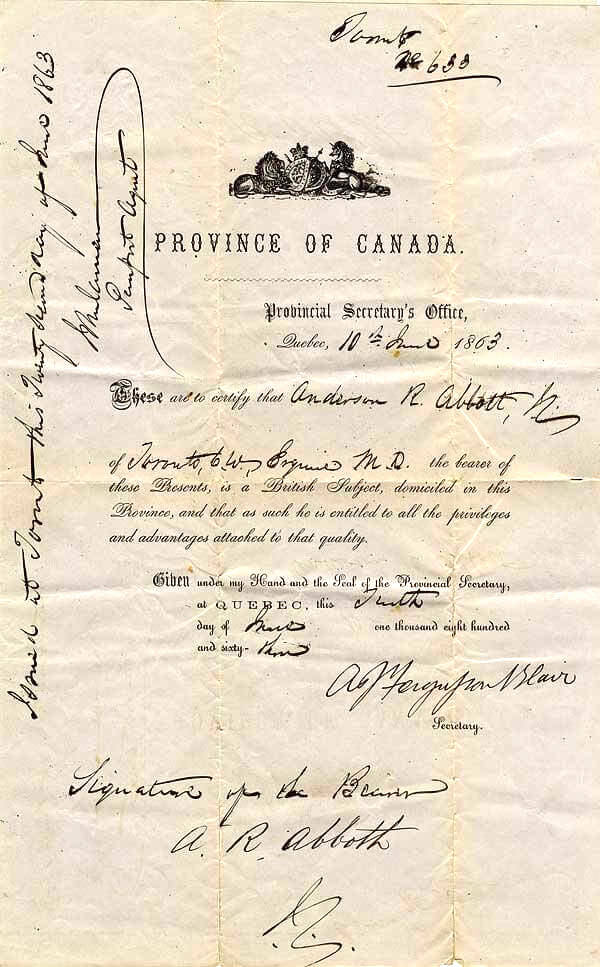 Toronto
No 633
PROVINCE OF CANADA.
Provincial Secretary's Office,
Quebec, 10th June 1863.
These are to certify that Anderson R. Abbott,
of Toronto, C.W., Esquire M.D. the bearer of
these Presents, is a British Subject, domiciled in this
Province, and that as such he is entitled to all the privileges
and advantages attached to that quality.
Given under my Hand and the Seal of the Provincial Secretary,
at QUEBEC, this Tenth
day of June one thousand eight hundred
and sixty-three
A J Fergusson Blair
Secretary.
Signature of the Bearer
A. R. Abbott
Issued at Toronto this Twenty Second day of June 1863
Passport Agent